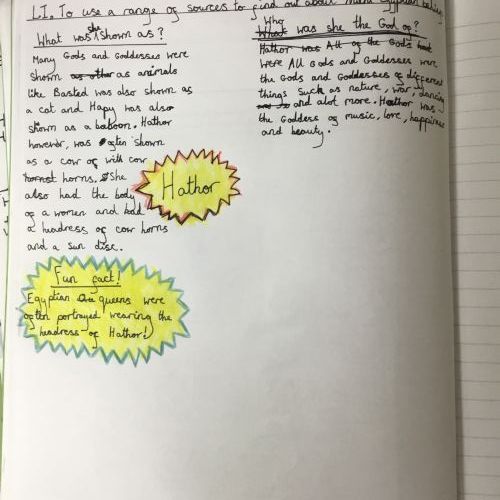 L.I. To use a range of sources to find out about more egyptian
What was she shown as?
Many Gods and Goddesses were
shown as animals
like Basted was also shown as
a cat and Hapy was also
shown as a baboon. Hathor
however, was often shown
as a cow or with cow
horns. She
also had the body
of a women and had
a headress of cow horns
and a sun disc.
Who was she the God of?
Hathor was All of the Gods
were All Gods and Goddesses were
the Gods and Goddesses of different
things such as nature, war, dancing
and alot more. Hathor was
the Goddess of music, love, happiness
and beauty.
Hathor
Fun fact!
Egyptian queens were
often portrayed wearing the
headress of Hathor!